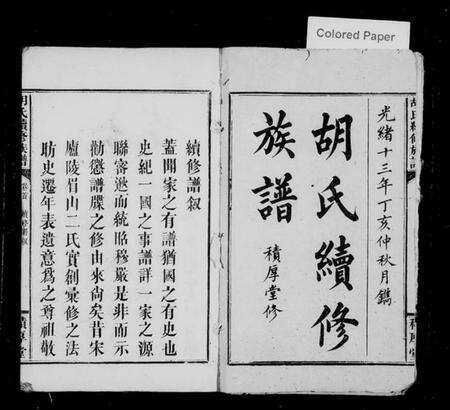 Colored Paper
光緒十三年丁亥仲秋月鐫
胡氏續修
族譜
積厚堂修
續修譜叙
蓋聞家之有譜猶國之有史也
史紀一國之事譜詳一家之源
聯審遡而統昭穆嚴是非而示
勸懲譜牒之修由來尚矣昔宋
廬陵眉山二氏實創彙修之法
昉史遷年表遺意為之尊祖敬
胡氏續修族譜